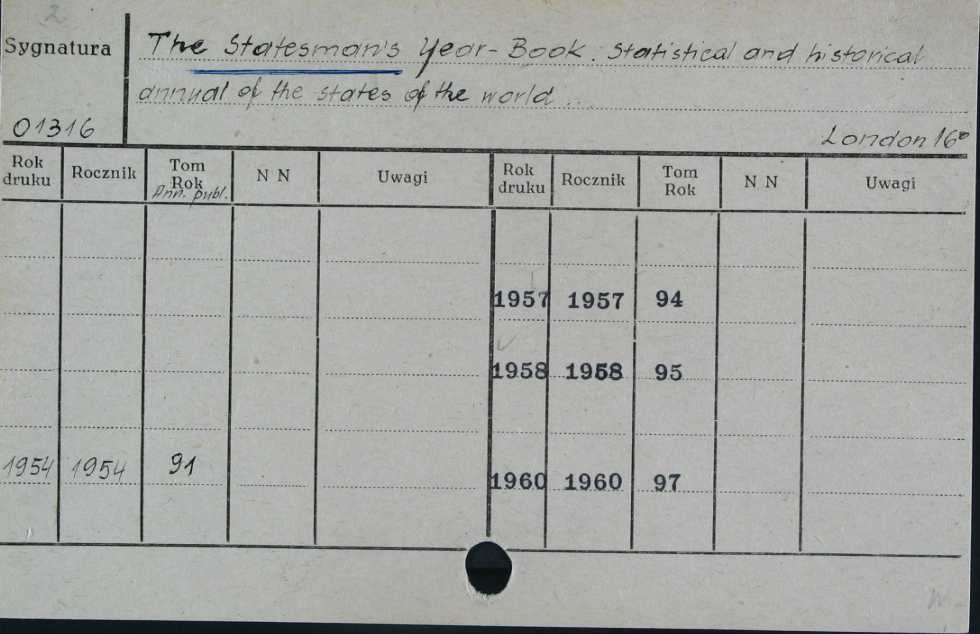 2
Sygnatura
The Statesman's Year-Book. Statistical and historical
annual of the states of the world ...
01316
London 16°
Rok druku Rocznik Tom Rok N N Uwagi Rok druku Rocznik Tom Rok N N Uwagi
Ann. publ.
1957 1957 94
1958 1958 95
1954 1954 91 1960 1960 97